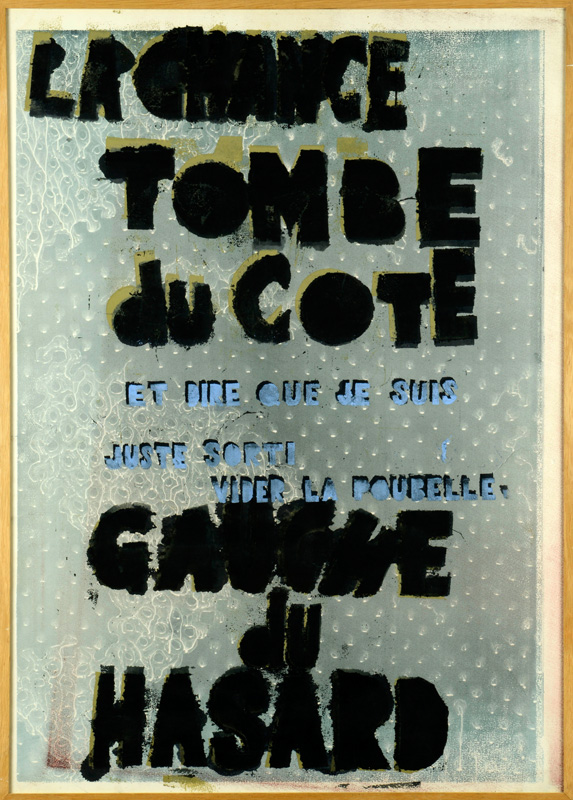 LA CHANCE
TOMBE
du COTE
ET DIRE QUE JE SUIS
JUSTE SORTI
VIDER LA POUBELLE.
GAUCHE
du
HASARD